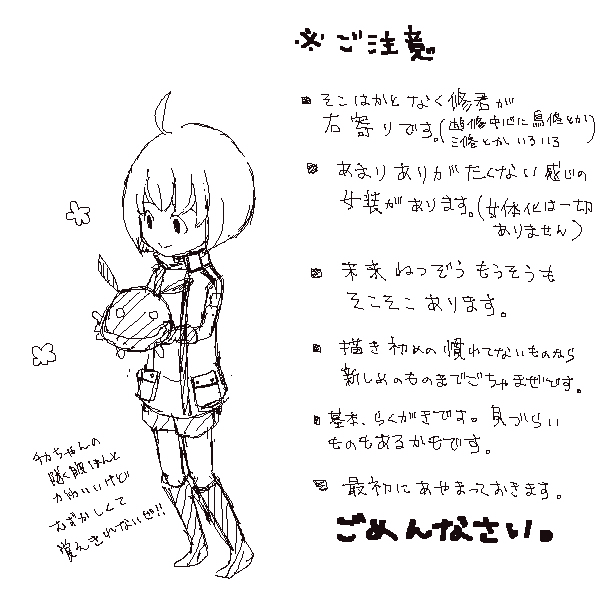 ※ご注意
そこはかとなく修君が
右寄りです。(遊修中心に鳥修とか
三修とかいろいろ)
あまりありがたくない感じの
女装があります。(女体化は一切
ありません)
未来ねつぞうもうそうも
そこそこあります。
描き初めの慣れてないものから
新しめのものまでごちゃまぜです。
基本、らくがきです。見づらい
ものもあるかもです。
最初にあやまっておきます。
ごめんなさい。
チカちゃんの
隊服ほんと
かわいいけど
むずかしくて
覚えきれないぜ!!